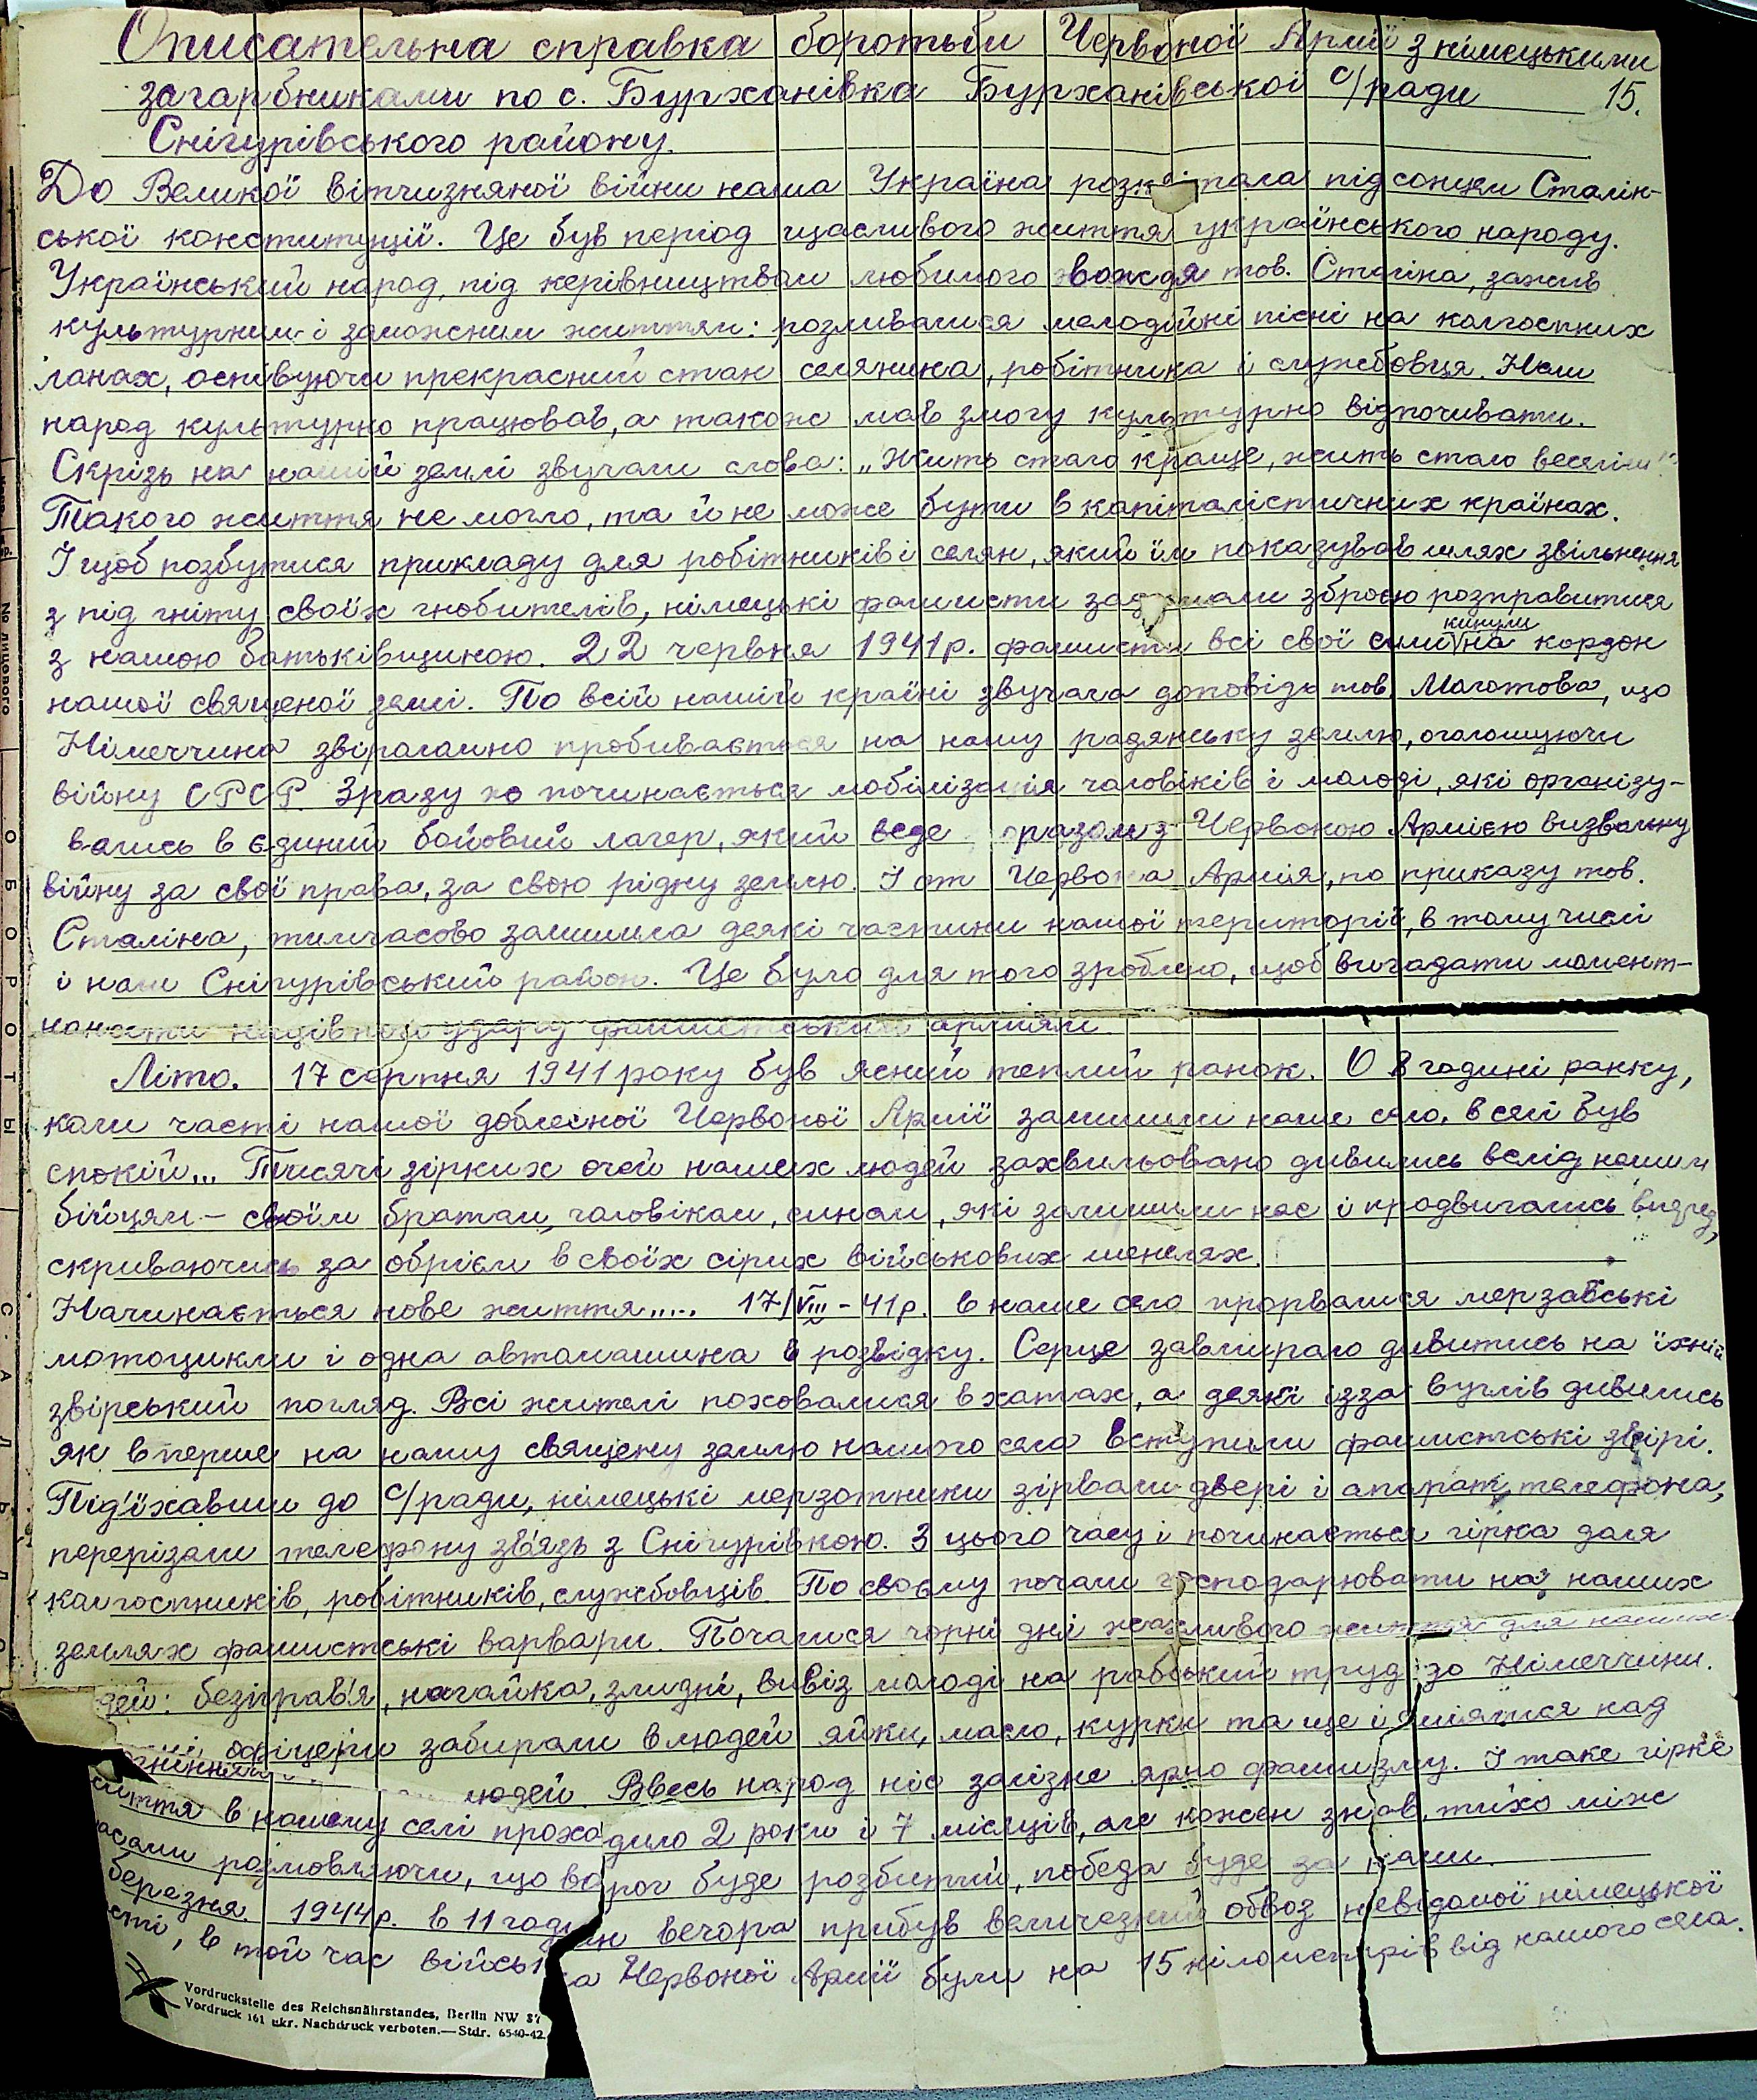 Описательна справка боротьби Червоної Армії з німецькими
загарбниками по с. Бурханівка Бурханівської с/ради 15.
Снігурівського району.
До Великої вітчизняної війни наша Україна розквітала під сонцем Сталін-
ської конституції. Це був період щасливого життя українського народу.
Український народ, під керівництвом любимого вождя тов. Сталіна, зажив
культурним і заможним життям: розливалися мелодійні пісні на колгоспних
ланах, оспівуючи прекрасний стан селянина, робітника і службовця. Наш
народ культурно працював, а також мав змогу культурно відпочивати.
Скрізь на нашій землі звучали слова: „Жить стало краще, жить стало веселіш"
Такого життя не могло, та й не може бути в капіталістичних країнах.
І щоб позбутися прикладу для робітників і селян, який їм показував шлях звільнення
з під гніту своїх гнобителів, німецькі фашисти задумали зброєю розправитися
з нашою батьківщиною. 22 червня 1941р. фашисти всі свої сили кинули на кордон
нашої священої землі. По всій нашій країні звучала доповідь тов. Молотова, що
Німеччина звіромашно пробивається на нашу радянську землю, оголошуючи
війну СРСР. Зразу же починається мобілізація чоловіків і молоді, які організу-
вались в єдиний бойовий лагер, який веде поразом з Червоною Армією визвольну
війну за свої права, за свою рідну землю. І от Червона Армія, по приказу тов.
Сталіна, тимчасово залишила деякі частини нашої території, в тому числі
і наш Снігурівський район. Це було для того зроблено, щоб вигадати момент-
нанести нищівний удару фашистським арміям.
Літо. 17 серпня 1941 року був ясний теплий ранок. О 8 годині ранку,
коли часті нашої доблесної Червоної Армії залишили наше село, в селі був
спокій... Тисячі зірких очей наших людей захвильовано дивились вслід нашим
бійцям - своїм братам, чоловікам, синам, які залишили нас і продвигались вперед,
скриваючись за обрієм в своїх сірих військових шенелях.
Начинається нове життя..... 17/VIII - 41р. в наше село прорвалися мерзавські
мотоцикли і одна автомашина в розвідку. Серце завмирало дивитись на їхній
звірський погляд. Всі жителі поховалися в хатах, а деякі ізза вуглів дивились
як вперше на нашу священу землю нашого села вступили фашистські звірі.
Під'їхавши до с/ради, німецькі мерзотники зірвали двері і апарат телефона,
перерізали телефону зв'язь з Снігурівкою. З цього часу і починається гірка доля
колгоспників, робітників, службовців. По своєму почали господарювати на наших
землях фашистські варвари. Почалися чорні дні жахливого життя для наших
дей: безправ'я, нагайка, злидні, вивіз молоді на рабський труд до Німеччини.
офіцери забирали в людей яйки, масло, курки та ще і сміялися над
людей. Ввесь народ ніс залізне ярмо фашизму. І таке гірке
життя в нашому селі проходило 2 роки і 7 місяців, але кожен знав, тихо між
розмовляючи, що ворог буде розбитий, победа буде за нами.
березня. 1944р. в 11 годин вечора прибув величезний обвоз невідомої німецької
в той час війська Червоної Армії були на 15 кілометрів від нашого села.
Vordruckstelle des Reichsnährstandes, Berlin NW 87
Vordruck 161 ukr. Nachdruck verboten.—Stdr. 6540-42.
No лицевого
ОБОРОТЫ